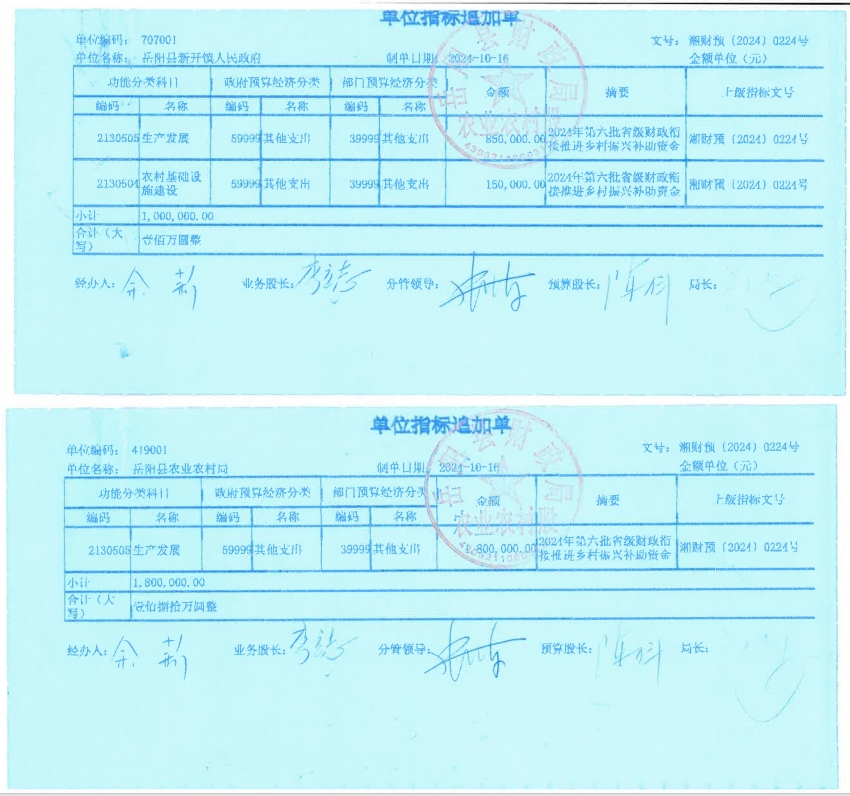 单位指标追加单
单位编码： 707001 文号： 湘财预〔2024〕0224号
单位名称： 岳阳县新开镇人民政府 制单日期： 2024-10-16 金额单位（元）
功能分类科目 政府预算经济分类 部门预算经济分类 金额 摘要 上级指标文号
编码 名称 编码 名称 编码 名称
2130505 生产发展 59999 其他支出 39999 其他支出 850,000.00 2024年第六批省级财政衔接推进乡村振兴补助资金 湘财预〔2024〕0224号
2130504 农村基础设施建设 59999 其他支出 39999 其他支出 150,000.00 2024年第六批省级财政衔接推进乡村振兴补助资金 湘财预〔2024〕0224号
小计 1,000,000.00
合计（大写） 壹佰万圆整
经办人： 业务股长： 分管领导： 预算股长： 局长：
岳阳县财政局
农业农村股
单位指标追加单
单位编码： 419001 文号： 湘财预〔2024〕0224号
单位名称： 岳阳县农业农村局 制单日期： 2024-10-16 金额单位（元）
功能分类科目 政府预算经济分类 部门预算经济分类 金额 摘要 上级指标文号
编码 名称 编码 名称 编码 名称
2130505 生产发展 59999 其他支出 39999 其他支出 1,800,000.00 2024年第六批省级财政衔接推进乡村振兴补助资金 湘财预〔2024〕0224号
小计 1,800,000.00
合计（大写） 壹佰捌拾万圆整
经办人： 业务股长： 分管领导： 预算股长： 局长：
岳阳县财政局
农业农村股